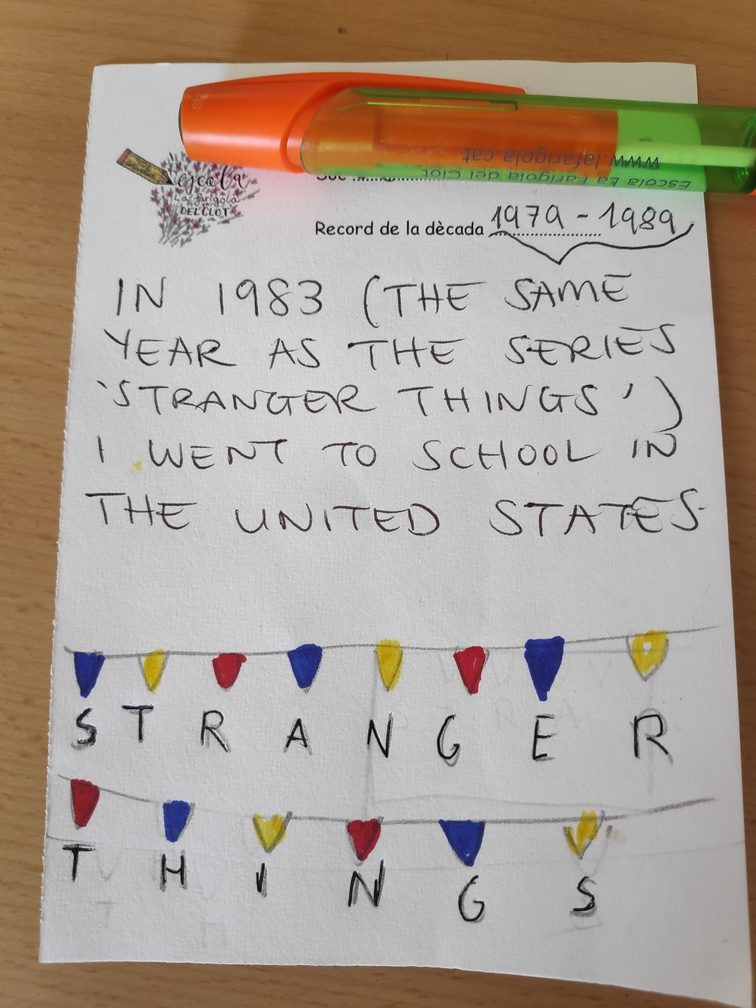 www.lafarigola.cat
Escola La Farigola del Clot
escola
La Farigola
DEL CLOT
Record de la dècada 1979 - 1989
IN 1983 (THE SAME
YEAR AS THE SERIES
'STRANGER THINGS')
I WENT TO SCHOOL IN
THE UNITED STATES.
S T R A N G E R
T H I N G S